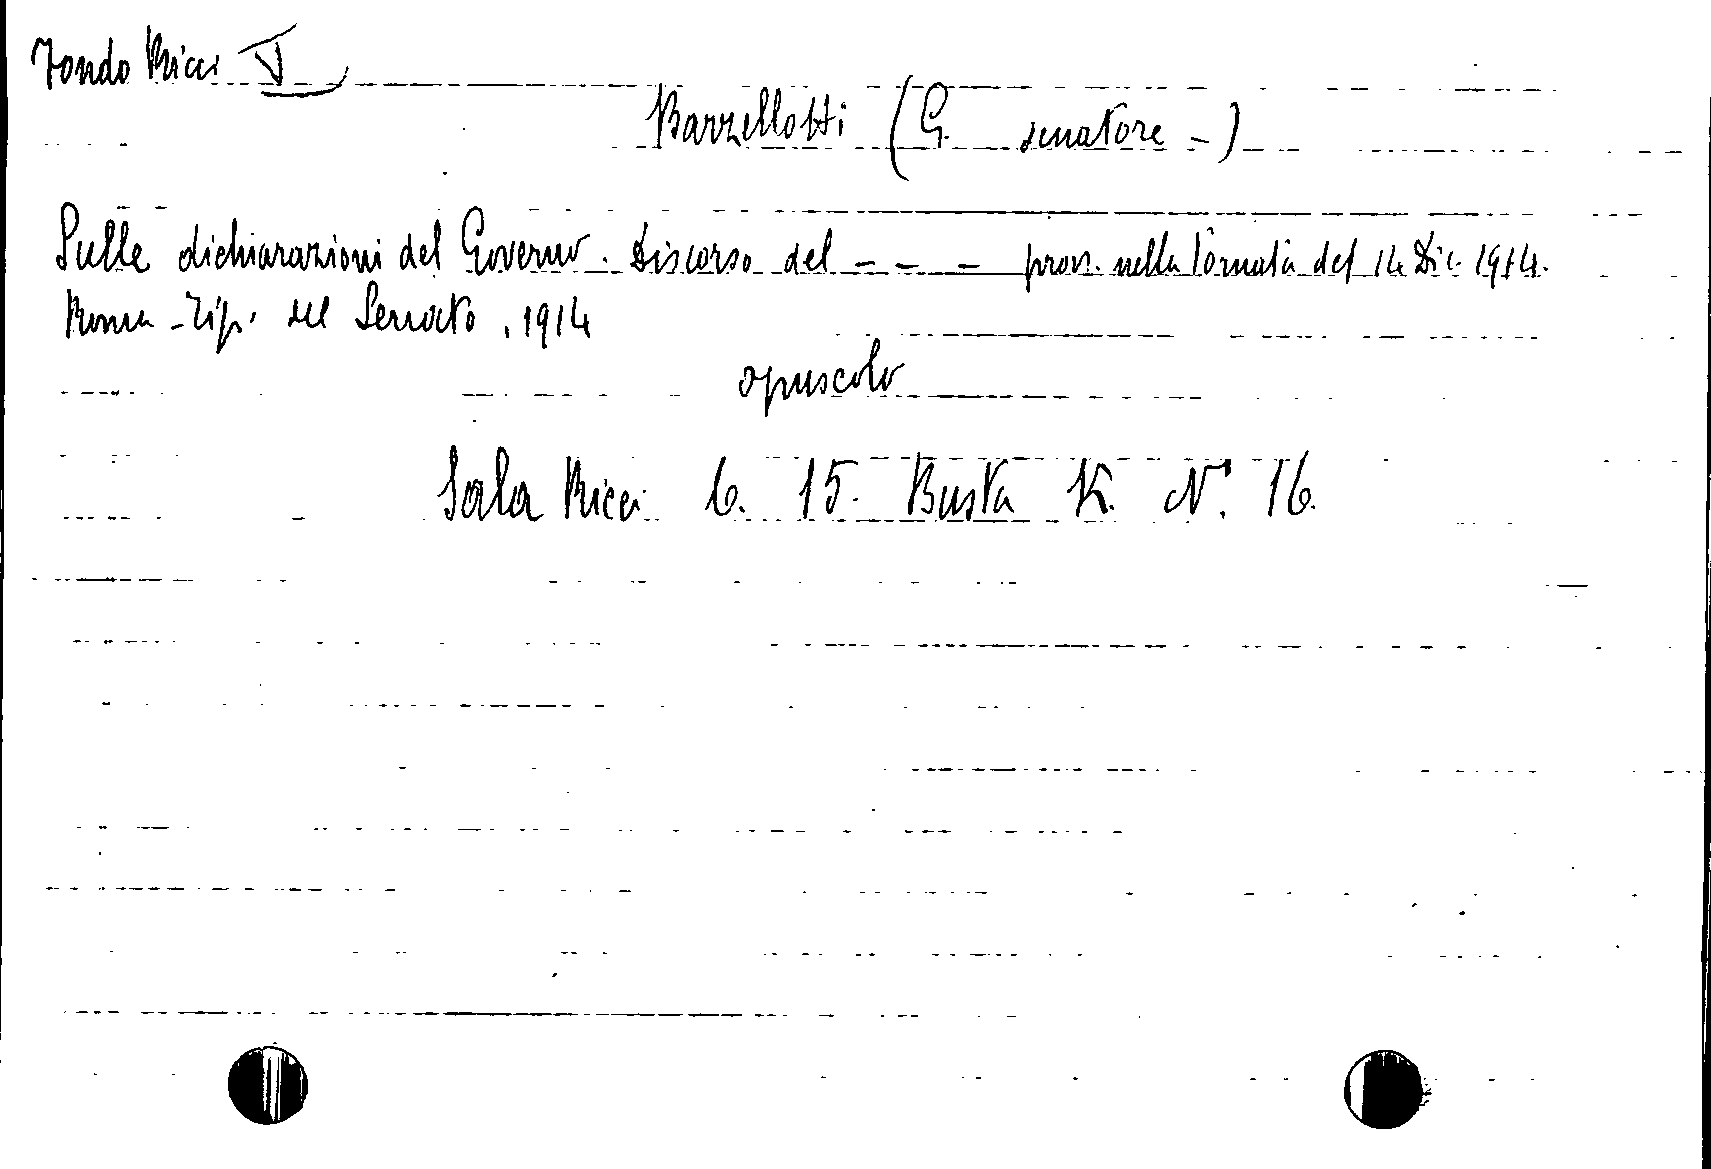 Fondo Ricci V
Barzellotti (G. senatore -)
Sulle dichiarazioni del Governo. Discorso del - - - pron. nella Tornata del 14 Dic. 1914.
Roma - Tip. del Senato, 1914
opuscolo
Sala Ricci 6. 15. Busta K. N. 16.